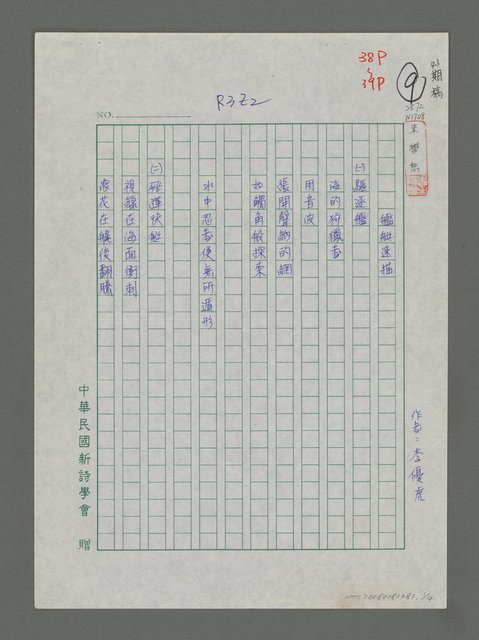 43期稿
38P
~
39P
9
R3Z2
NO.
艦艇速描
作者:李優虎
㈠驅逐艦
海的狩獵者
用音波
張開聲納的網
如觸角般探索
水中忍者便無所遁形
㈡飛彈快艇
視線在海面衝刺
浪花在艇後翻騰
中華民國新詩學會 贈